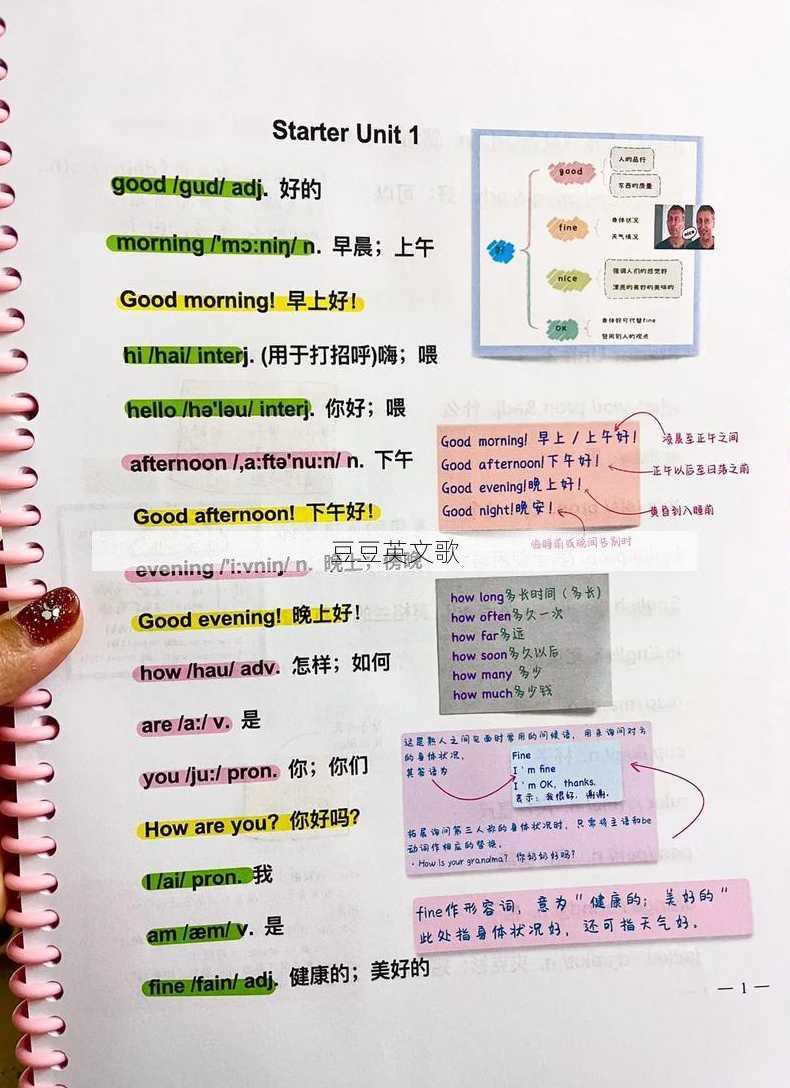 Starter Unit 1
good /gud/ adj. 好的
morning /'mɔ:niŋ/ n. 早晨；上午
Good morning! 早上好！
hi /hai/ interj. (用于打招呼)嗨；喂
hello /hə'ləu/ interj. 你好；喂
afternoon /,a:ftə'nu:n/ n. 下午
Good afternoon! 下午好！
evening /'i:vniŋ/ n. 晚上；傍晚
豆豆英文歌
Good evening! 晚上好！
how /hau/ adv. 怎样；如何
are /a:/ v. 是
you /ju:/ pron. 你；你们
How are you? 你好吗？
I /ai/ pron. 我
am /æm/ v. 是
fine /fain/ adj. 健康的；美好的
好
good
人的品行
东西的质量
fine
身体状况
天气情况
nice
强调人们的感觉好
漂亮的美好的美味的
OK
身体好可代替fine
赞同别人的观点
NICE
Good morning! 早上/上午好！
凌晨至正午之间
Good afternoon!下午好！
正午以后至日落之前
Good evening!晚上好！
黄昏到入睡前
Good night!晚安！
临睡前或晚间告别时
how long多长时间（多长）
how often多久一次
how far多远
how soon多久以后
how many 多少
how much多少钱
这是熟人之间见面时常用的问候语，用来询问对方
的身体状况。
其答语为
Fine
I'm fine
I'm OK, thanks.
表示：我很好，谢谢。
拓展询问第三人称的身体状况时，只需将主语和be
动词作相应的替换。
·How is your grandma? 你奶奶好吗？
fine作形容词，意为"健康的；美好的"
此处指身体状况好，还可指天气好。
— 1 —